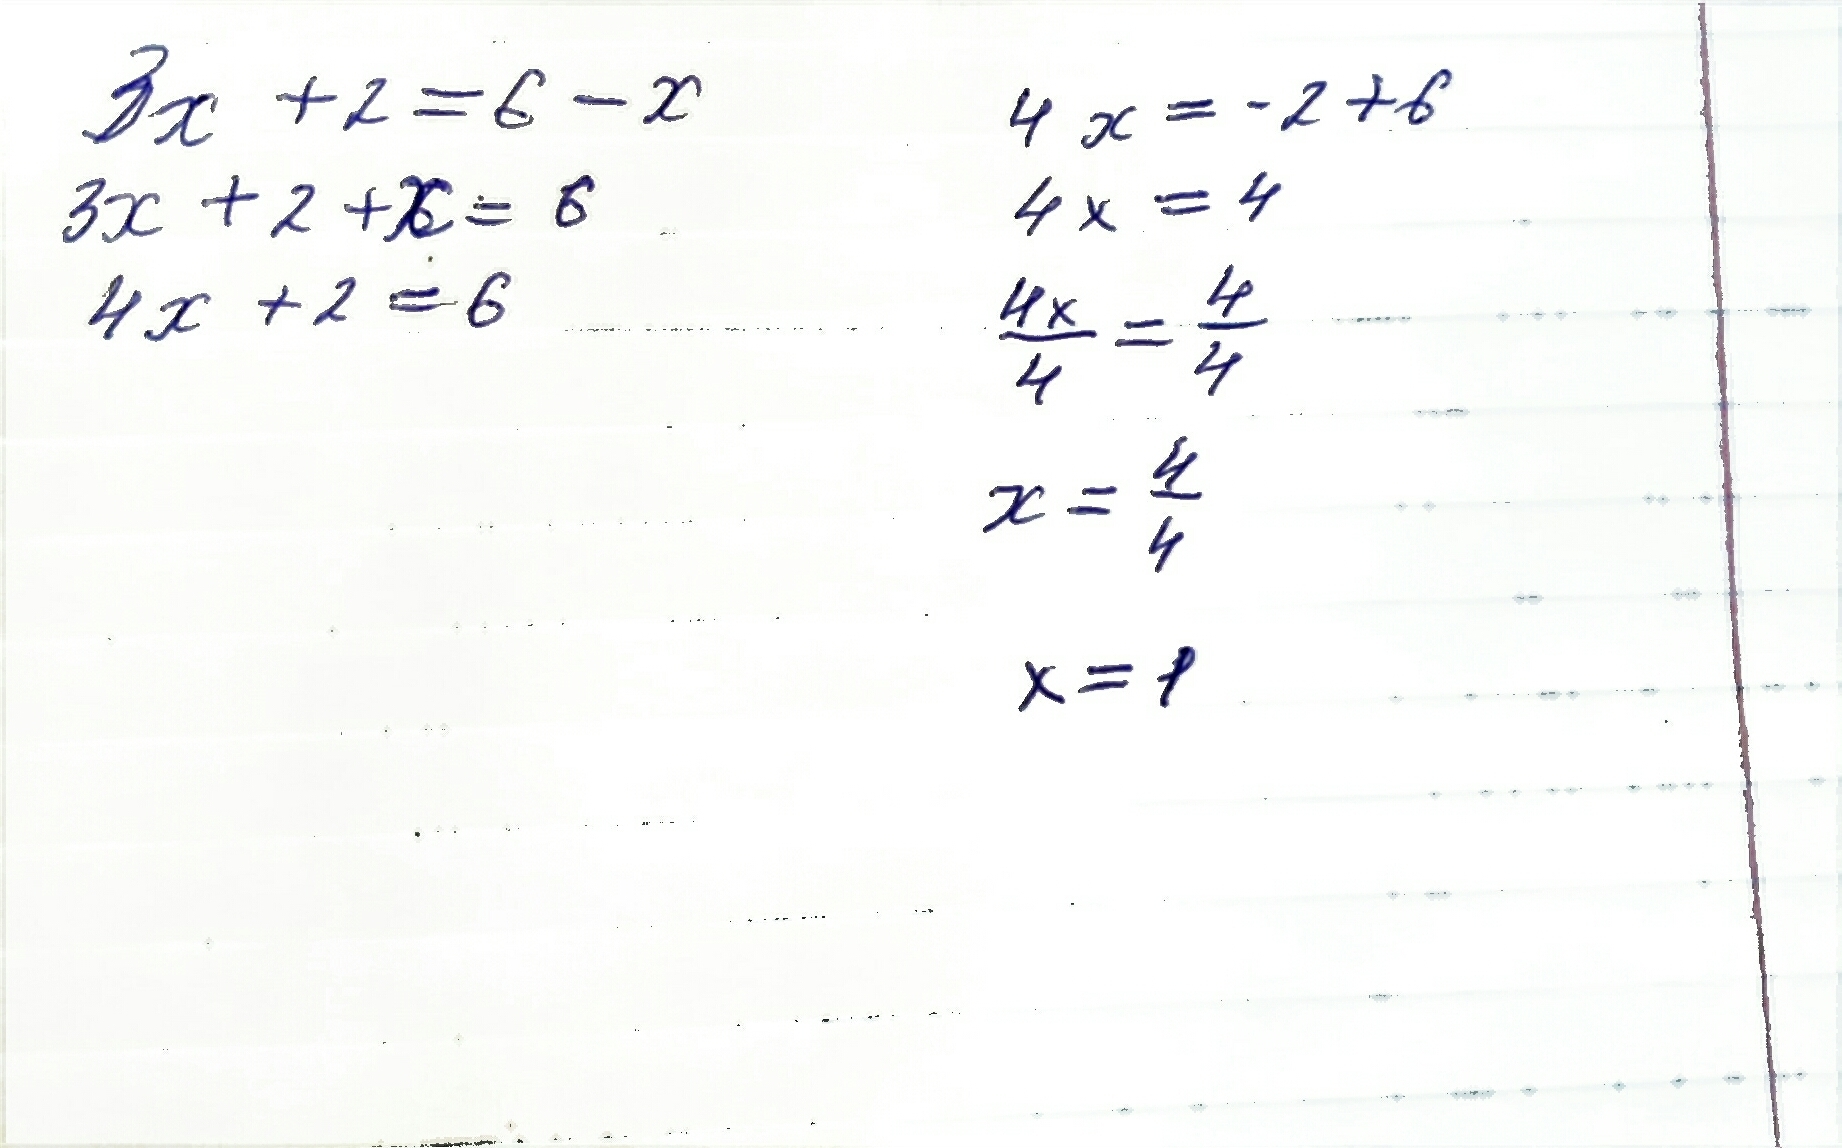 3x + 2 = 6 - x
3x + 2 + x = 6
4x + 2 = 6
4x = -2 + 6
4x = 4
4x/4 = 4/4
x = 4/4
x = 1